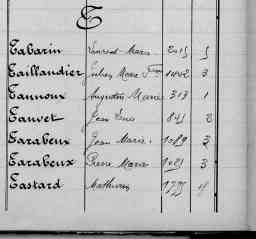 T
Tabarin Laurent Marie 2015 5
Taillandier Julien Marie Fçois 1402 3
Tannoux Augustin Marie 313 1
Tauvet Jean Louis 841 2
Tarabeux Jean Marie 1089 3
Tarabeux Pierre Marie 1021 3
Tastard Mathurin 1775 4